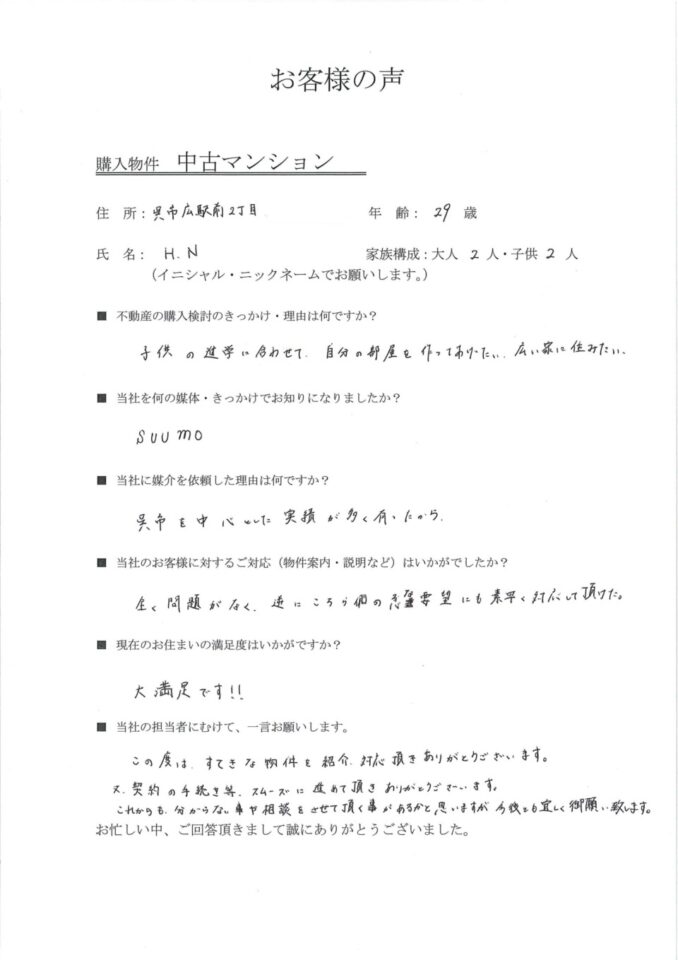 お客様の声
購入物件 中古マンション
住 所：呉市広駅前2丁目 年 齢： 29 歳
氏 名： H.N 家族構成：大人 2 人・子供 2 人
（イニシャル・ニックネームでお願いします。）
■ 不動産の購入検討のきっかけ・理由は何ですか？
子供の進学に合わせて、自分の部屋を作ってあげたい、広い家に住みたい、
■ 当社を何の媒体・きっかけでお知りになりましたか？
SUUMO
■ 当社に媒介を依頼した理由は何ですか？
呉市を中心とした実績が多く有ったから、
■ 当社のお客様に対するご対応（物件案内・説明など）はいかがでしたか？
全く問題がなく、逆にこちら側の要望にも素早く対応して頂けた。
■ 現在のお住まいの満足度はいかがですか？
大満足です!!
■ 当社の担当者にむけて、一言お願いします。
この度は、すてきな物件を紹介、対応頂きありがとうございます。
又、契約の手続き等、スムーズに進めて頂きありがとうございます。
これからも、分からない事や相談をさせて頂く事があるかと思いますが今後とも宜しく御願い致します。
お忙しい中、ご回答頂きまして誠にありがとうございました。